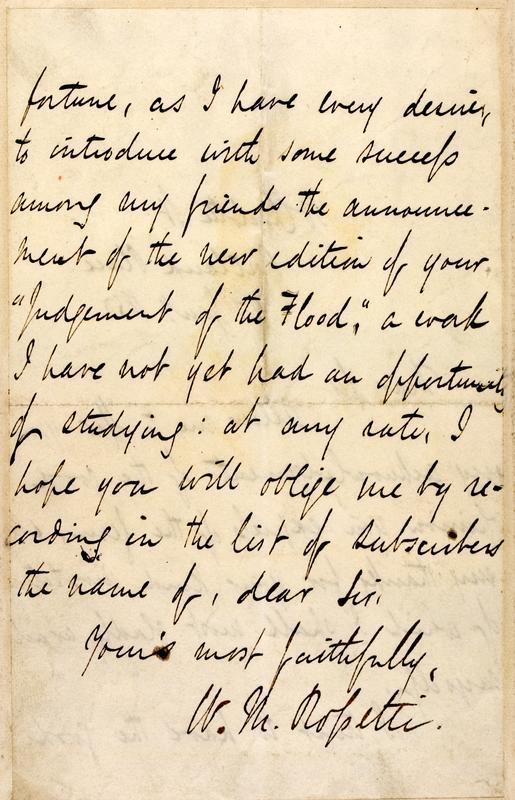 fortune, as I have every desire,
to introduce with some success
among my friends the announce-
ment of the new edition of your
"Judgement of the Flood," a work
I have not yet had an opportunity
of studying: at any rate, I
hope you will oblige me by re-
cording in the list of subscribers
the name of, dear Sir,
Your's most faithfully,
W. M. Rossetti.